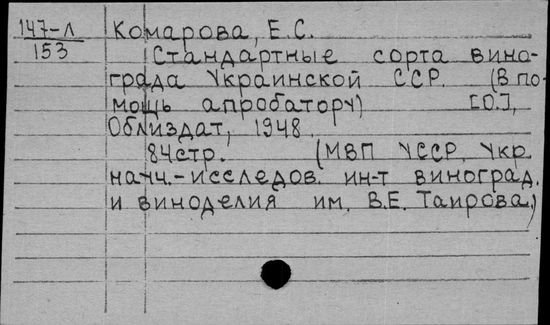 147-Л Комарова, Е.С.
153
Стандартные сорта вино-
града Украинской ССР. (В по-
мощь апробатору) [О.],
Облиздат, 1948.
84стр. (МВП УССР. Укр.
научн.-исследов. ин-т виноград.
и виноделия им. В.Е. Таирова.)